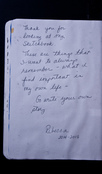 Thank you for
looking at my
Sketchbook.
These are things that
I want to always
remember - what I
find important in
my own life -
Go write your own
story
Rebecca